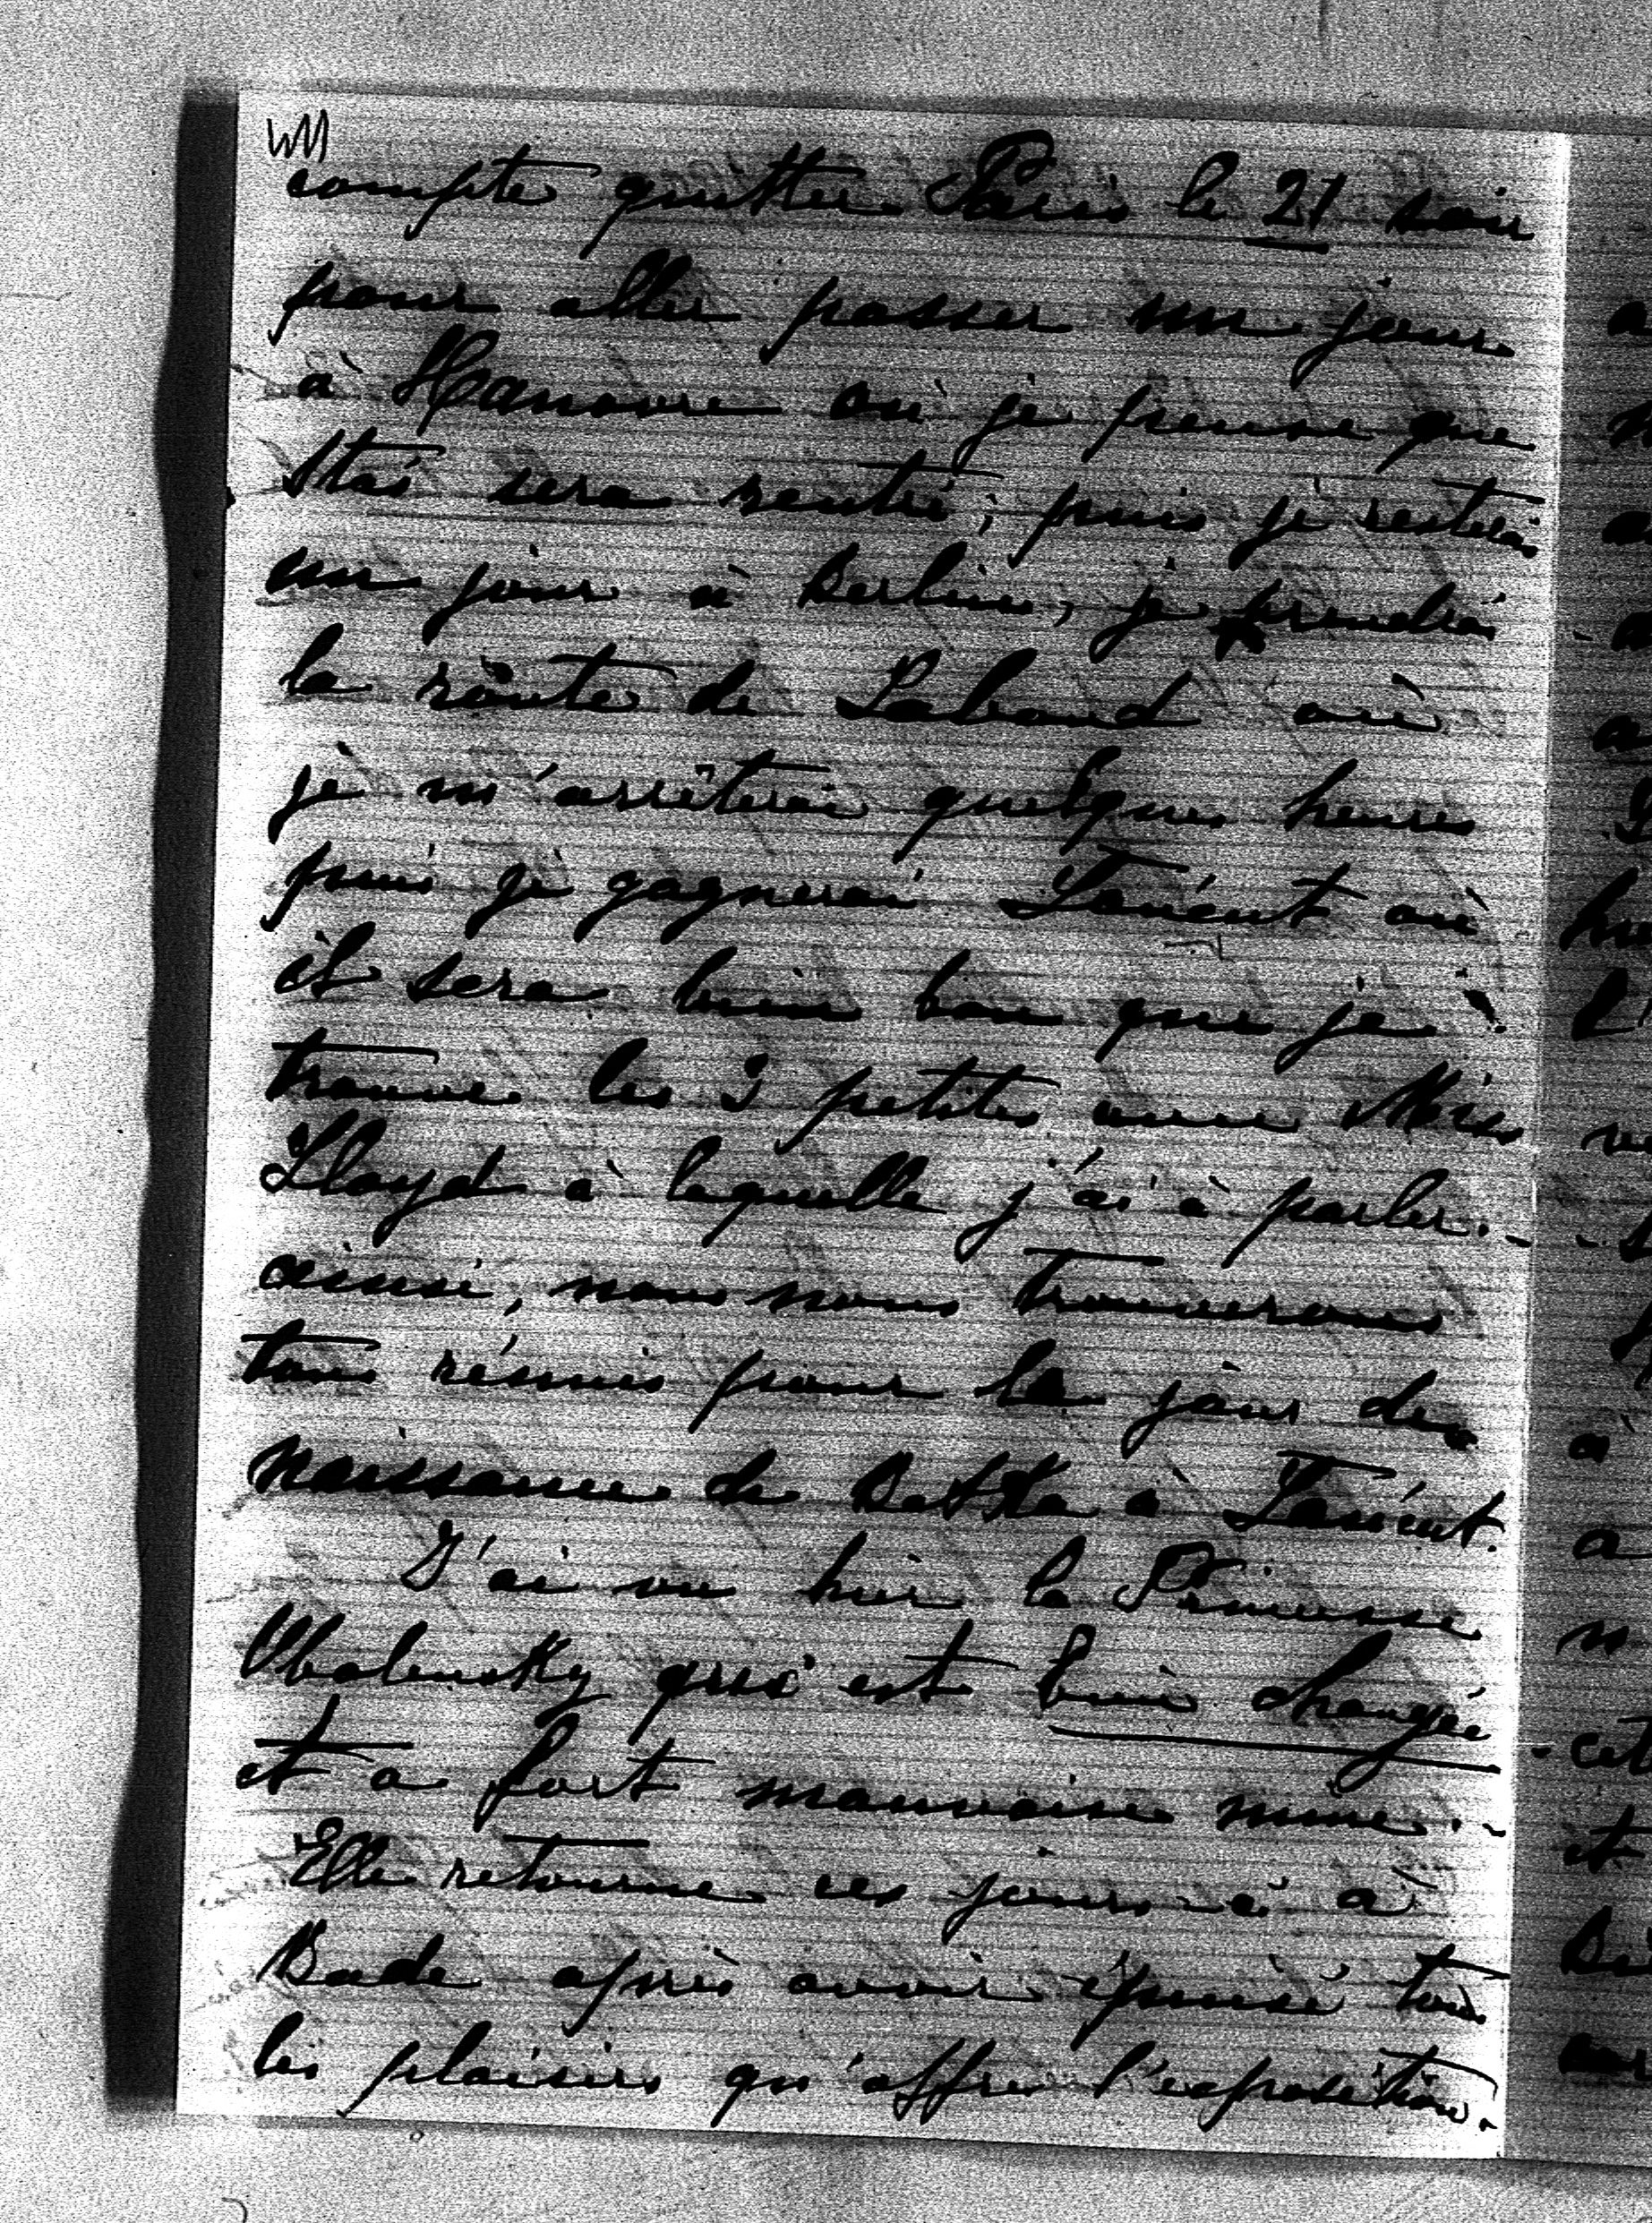 WM
compte quitter Paris le 21 soir
pour aller passer un jour
à Hanovre où je pense que
Stas sera rentré; puis je resterai
un jour à Berlin, je prendrai
la route de Laband où
je m'arrêterai quelques heures
puis je gagnerai Łańcut où
il sera bien bon que je
trouve les 3 petites avec Miss
Lloyd à laquelle j'ai à parler.-
ainsi, nous nous trouverons
tous réunis pour le jour de
naissance de Betka à Łańcut.
J'ai vu hier la Princesse
Obolensky qui est bien changée
et a fort mauvaise mine.-
Elle retourne ces jours-ci à
Bade après avoir épuisé tous
les plaisirs qu'offre l'exposition.